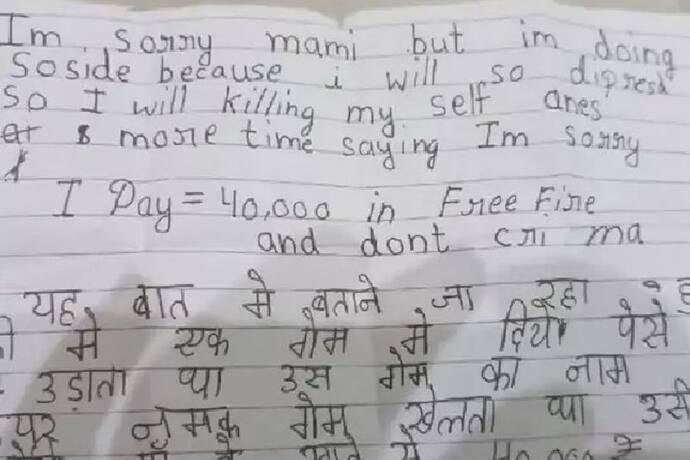 Im sorry mami but im doing
Soside because i will so dipresd
So I will killing my self
more time saying Im sorry
I Pay = 40,000 in Free Fire
and dont cri ma
यह बात मे बताने जा रहा
मे एक गेम मे दिये पेसे
उड़ाता था उस गेम का नाम
गेम खेलता था उसी
40,000